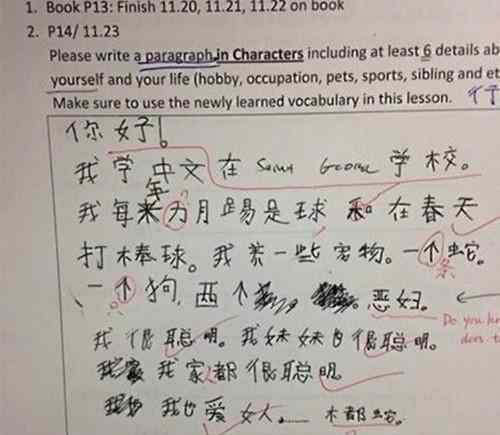 1. Book P13: Finish 11.20, 11.21, 11.22 on book
2. P14/ 11.23
Please write a paragraph in Characters including at least 6 details ab
yourself and your life (hobby, occupation, pets, sports, sibling and et
Make sure to use the newly learned vocabulary in this lesson.
你好!
我学中文在 学校。
年
我每 为月踢是球 和 在春天
打棒球。我养一些宠物。一个蛇。
条
一个狗, 西个 恶妇。
Do you
does t
我很聪明。我妹妹也很聪明。
我家人都很聪明。
我也爱女人 都蛇。